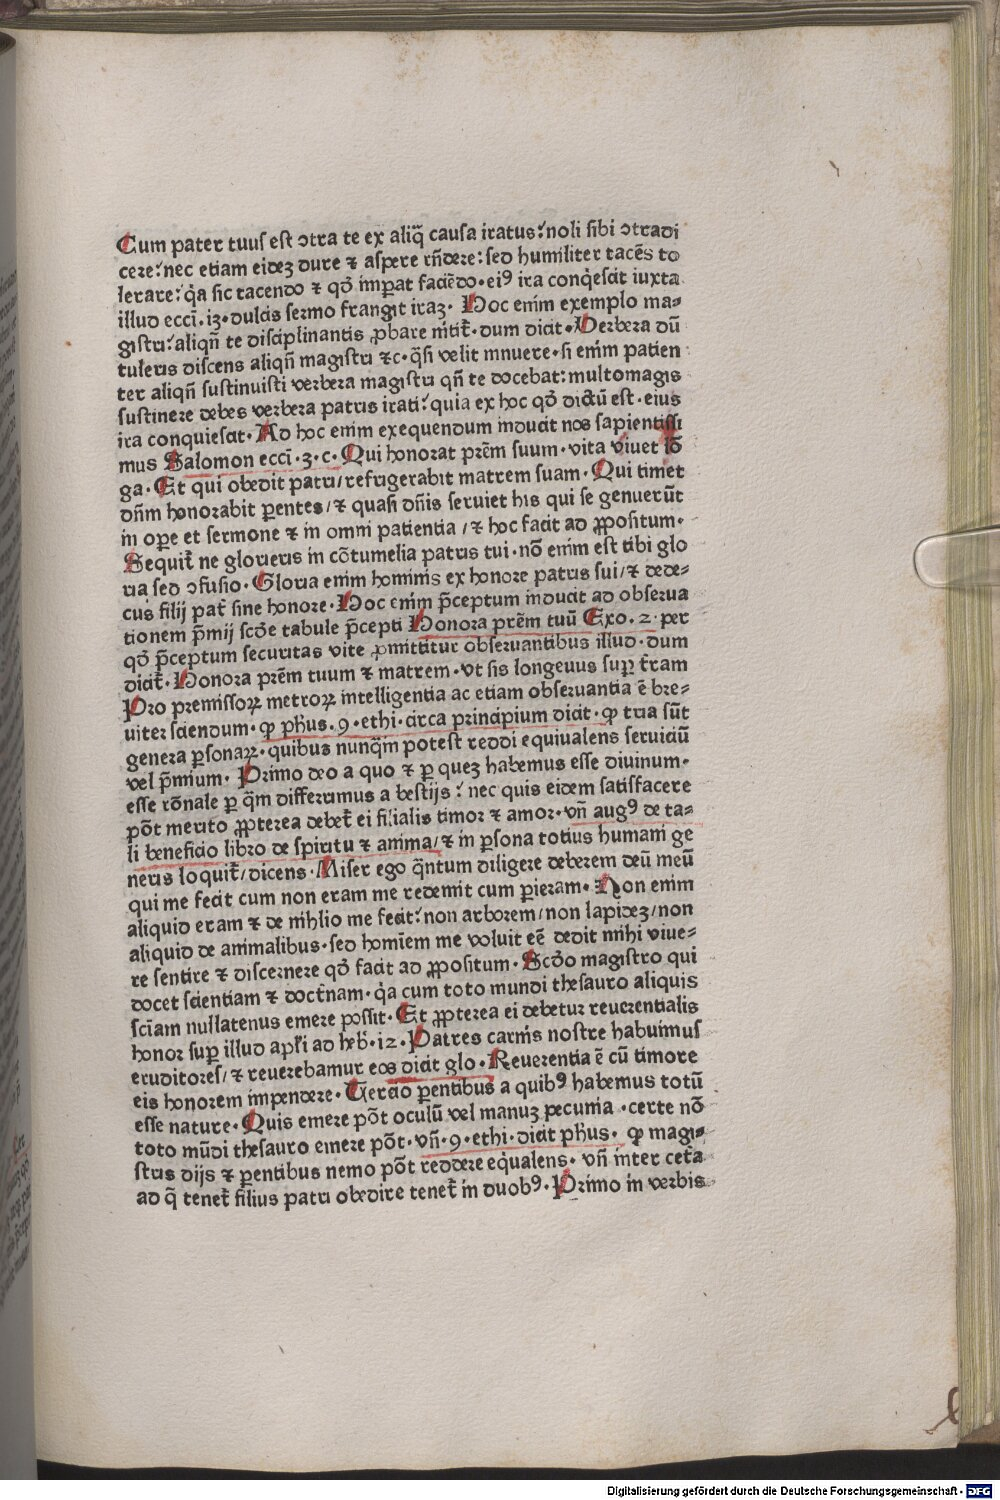 Cum pater tuus est ↄtra te ex aliq̄ causa iratus: noli sibi ↄtradi
cere: nec etiam eidez dure ⁊ aspere rn̄dere: sed humiliter tacēs to
lerare: q̇a sic tacendo ⁊ qḋ imꝑat faciēdo · eiꝰ ira conq̇escit iuxta
illud eccī. iʒ · dulcis sermo frangit iraʒ · Hoc enim exemplo ma⸗
gistri: aliqn̄ te disciplinantis ꝓbare nitit᷑ · dum dicit · Verbera dū
tuleris discens aliqn̄ magistri ⁊c · q̇si velit innuere · si enim patien
ter aliqn̄ sustinuisti verbera magistri qn̄ te docebat: multomagis
sustinere debes verbera patris irati: quia ex hoc qḋ dictū est · eius
ira conquiescit · Ad hoc enim exequendum inducit nos sapientissi
mus Salomon eccī · 3 · c · Qui honorat prēm suum · vita viuet lō
ga · Et qui obedit patri / refrigerabit matrem suam · Qui timet
dn̄m honorabit ꝑentes / ⁊ quasi dn̄is seruiet his qui se genuerūt
in oꝑe et sermone ⁊ in omni patientia / ⁊ hoc facit ad ꝓpositum ·
Sequit᷑ ne glorieris in cōtumelia patris tui · nō enim est tibi glo
ria sed ↄfusio · Gloria enim hominis ex honore patris sui / ⁊ dede⸗
cus filij pat᷑ sine honore · Hoc enim p̄ceptum inducit ad obserua
tionem p̄mij scḋe tabule p̄cepti Honora prēm tuū Exo. 2 · per
qḋ p̄ceptum securitas vite ꝓmittitur obseruantibus illud · dum
dicit᷑ · Honora prēm tuum ⁊ matrem · vt sis longeuus suꝑ t᷑ram
Pro premissoꝝ metroꝝ intelligentia ac etiam obseruantia ē bre⸗
uiter sciendum · ꝙ ph̄us . 9 · ethi · circa principium dicit · ꝙ tria sūt
genera ꝑsonaꝝ · quibus nunq̄m potest reddi equiualens seruiciū
vel p̄mium · Primo deo a quo ⁊ ꝑ quez habemus esse diuinum ·
esse rōnale ꝑ q̄m differimus a bestijs : nec quis eidem satisfacere
pōt merito ꝓpterea debet᷑ ei filialis timor ⁊ amor · vn̄ augꝰ de ta⸗
li beneficio libro de spiritu ⁊ anima / ⁊ in ꝑsona totius humani ge
neris loquit᷑ / dicens · Miser ego q̄ntum diligere deberem deū meū
qui me fecit cum non eram me redemit cum ꝑieram · Non enim
aliquid eram ⁊ de nihlio me fecit: non arborem / non lapidez / non
aliquid de animalibus · sed homīem me voluit eē dedit mihi viue⸗
re sentire ⁊ discernere qḋ facit ad ꝓpositum · Scḋo magistro qui
docet scientiam ⁊ doct᷑nam · q̇a cum toto mundi thesauro aliquis
scīam nullatenus emere possit · Et ꝓpterea ei debetur reuerentialis
honor suꝑ illud apl̄i ad heb᷑ · i2 · Patres carnis nostre habuimus
eruditores / ⁊ reuerebamur eos dicit glo · Reuerentia ē cū timore
eis honorem impendere · Tercio ꝑentibus a quibꝰ habemus totū
esse nature · Quis emere pōt oculū vel manuʒ pecunia · certe nō
toto mūdi thesauro emere pōt · vn̄ · 9 · ethi · dicit ph̄us · ꝙ magi⸗
stris dijs ⁊ ꝑentibus nemo pōt reddere eq̇ualens · vn̄ inter cet᷑a
ad q̄ tenet᷑ filius patri obedire tenet᷑ in duobꝰ · Primo in verbis
Digitalisierung gefördert durch die Deutsche Forschungsgemeinschaft - DFG